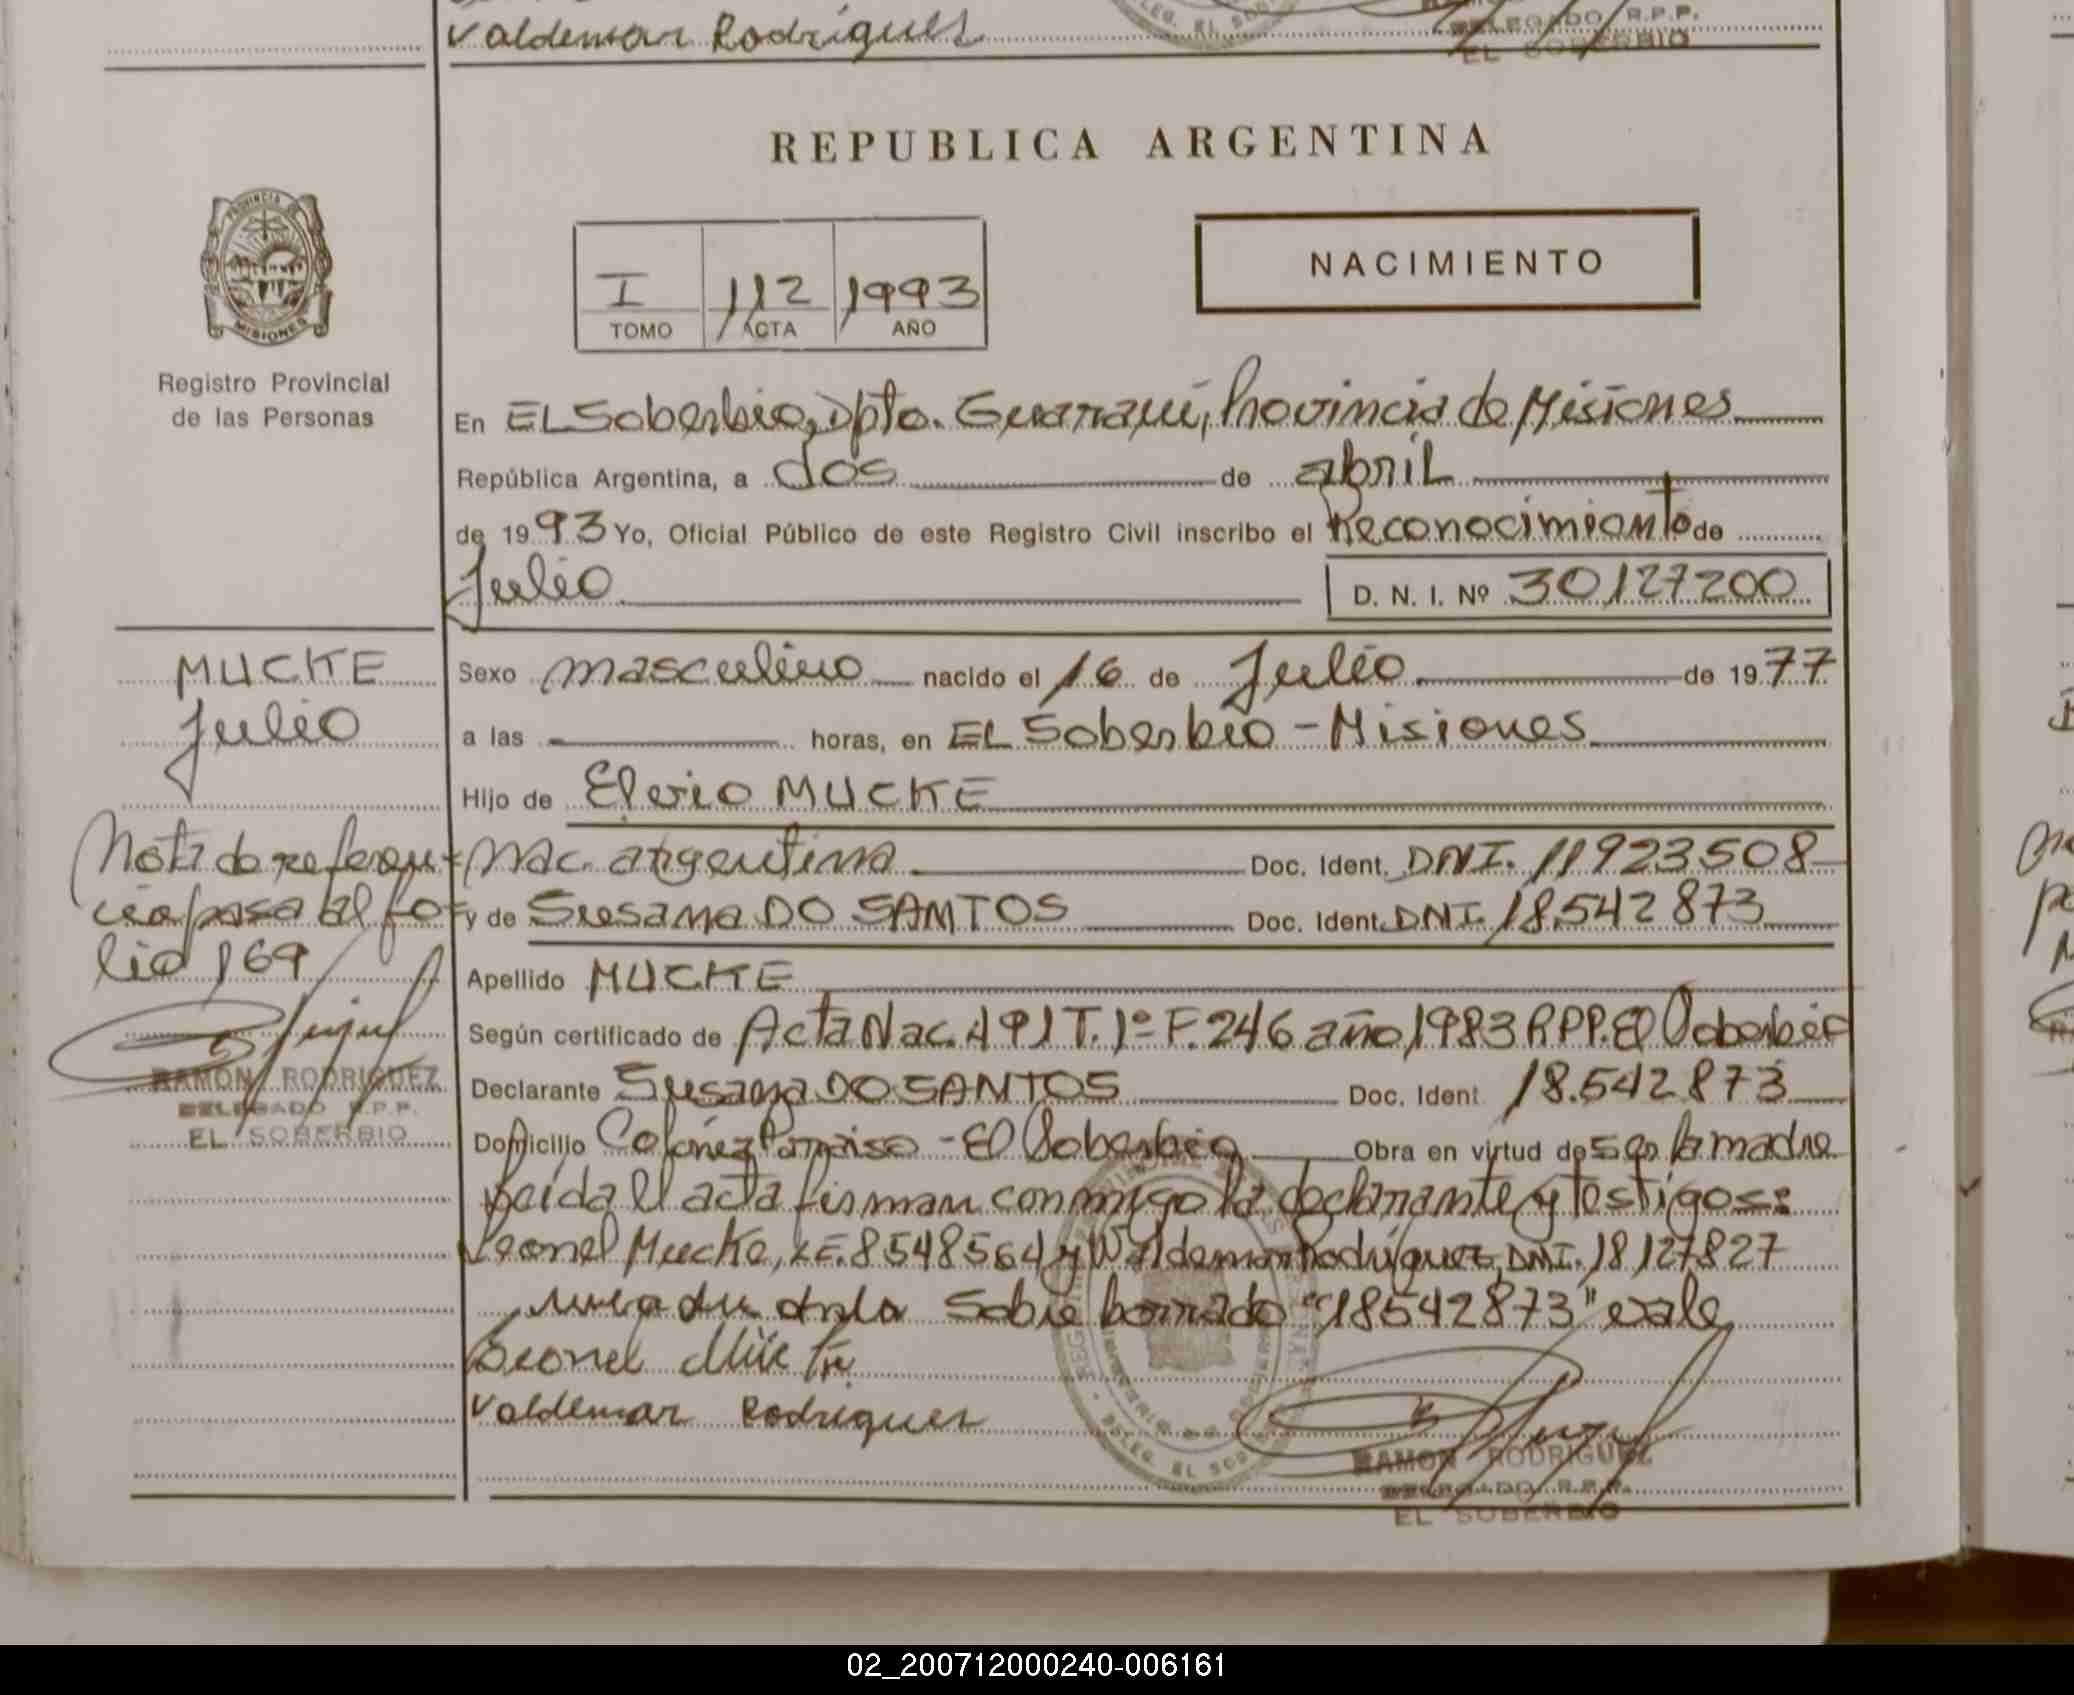 Valdemar Rodrigues
DELEGADO R.P.P.
EL SOBERBIO
REPUBLICA ARGENTINA
PROVINCIA DE
MISIONES
Registro Provincial
de las Personas
I 112 1993
TOMO ACTA AÑO
NACIMIENTO
En EL Soberbio, Dpto. Guaraní, Provincia de Misiones
República Argentina, a dos de abril
de 1993 Yo, Oficial Público de este Registro Civil inscribo el Reconocimiento de
Julio D. N. I. Nº 30127200
MUCKE
Julio
Sexo masculino nacido el 16 de Julio de 1977
a las horas, en EL Soberbio - Misiones
Hijo de Elvio MUCKE
Nac. argentina Doc. Ident. DNI. 11923508
y de Susana DO SANTOS Doc. Ident. DNI. 18.542873
Nota de referen-
cia pasa al fo-
lio 169
RAMON RODRIGUEZ
DELEGADO R.P.P.
EL SOBERBIO
Apellido MUCKE
Según certificado de Acta Nac. 491 T. 1º F. 246 año 1983 RPP. El Soberbio
Declarante Susana DO SANTOS Doc. Ident 18.542873
Domicilio Colonia Paraiso - El Soberbio Obra en virtud de ser la madre
Leída el acta firman conmigo la declarante y testigos:
Leonel Mucke, LE. 8548564 y Waldemar Rodríguez, DNI. 18127827
Sobre borrado "18542873" vale
Leonel Mück
Valdemar Rodrigues
RAMON RODRIGUEZ
DELEGADO R.P.P.
EL SOBERBIO
02_200712000240-006161